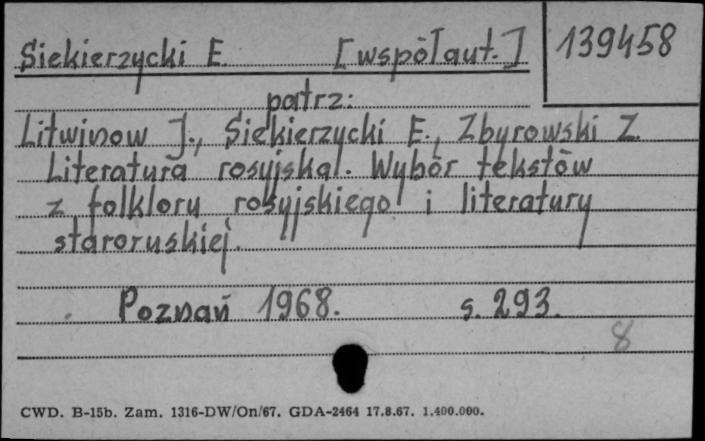 Siekierzycki E. [współaut.] 139458
patrz:
Litwinow J., Siekierzycki E., Zbyrowski Z.
Literatura rosyjska. Wybór tekstów
z folkloru rosyjskiego i literatury
staroruskiej.
Poznań 1968. s. 293.
8
CWD. B-15b. Zam. 1316-DW/On/67. GDA-2464 17.8.67. 1.400.000.